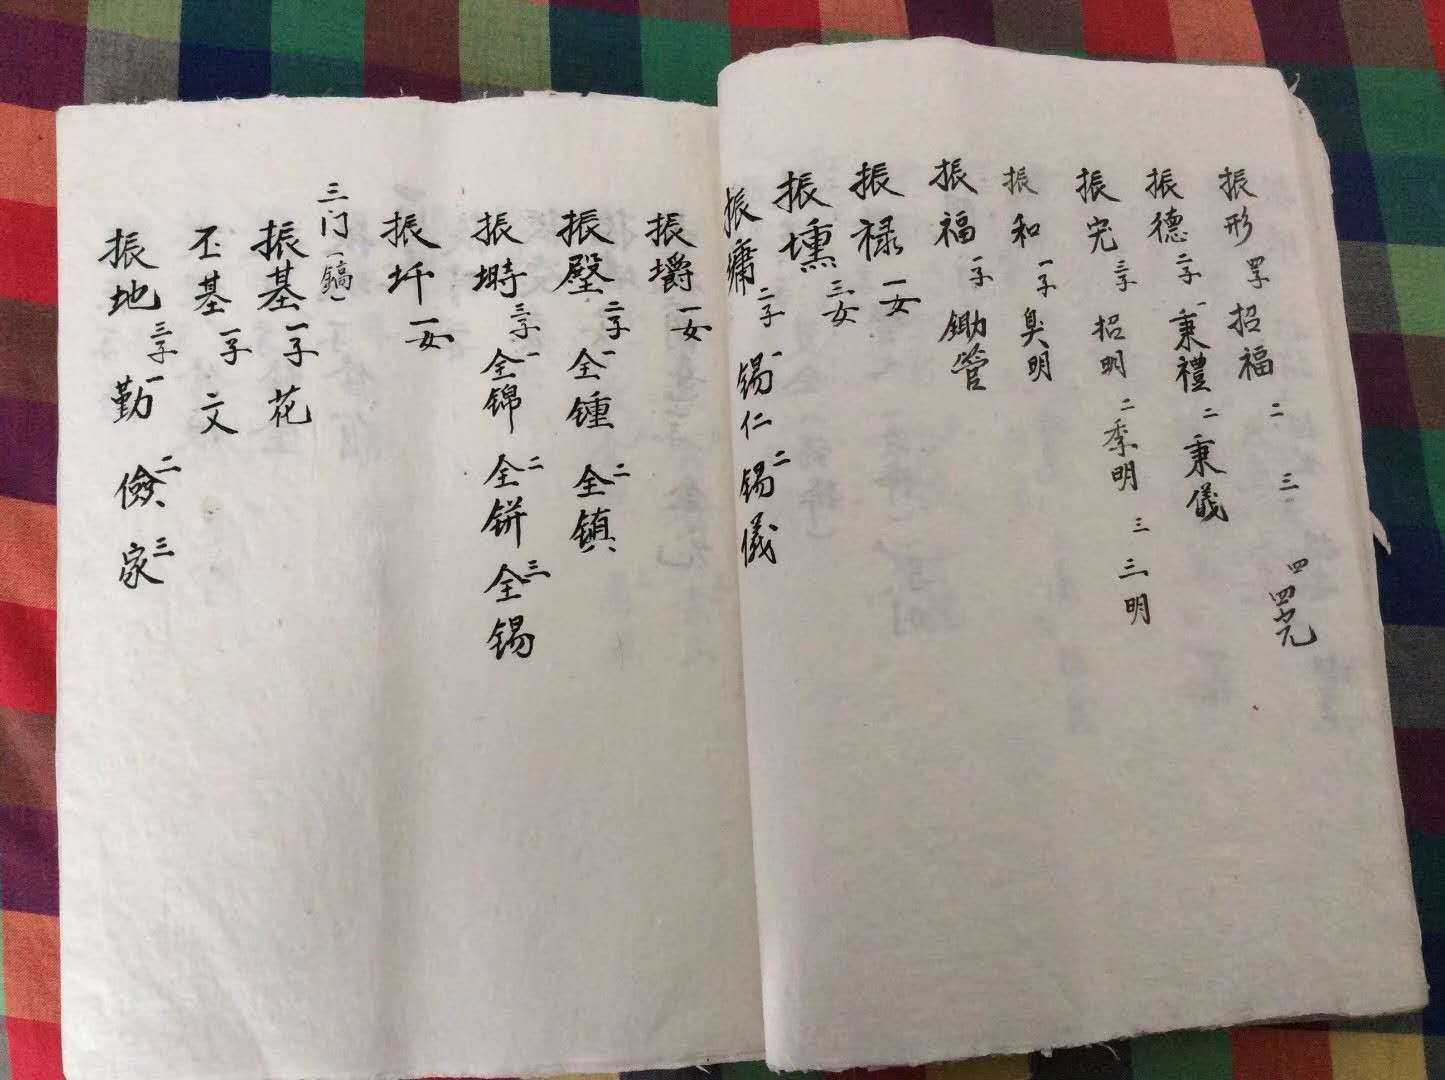 振形 四子 招福 二 三 四 四完
振德 二子 一秉禮 二秉儀
振完 三子 招明 二季明 三三明
振和 一子 臭明
振福 一子 鋤管
振禄 一女
振壎 三女
振墉 二子 一锡仁 二锡儀
振 一女
振壂 二子 一全锺 二全镇
振塒 三子 一全锦 二全鉼 三全锡
振圲 一女
三门(镐)
振基 一子 花
丕基 一子 文
振地 三子 一勤 二儉 三家